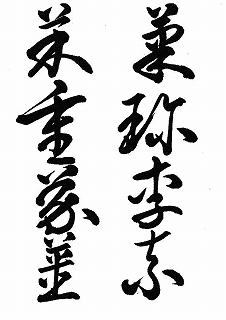 菓珍李柰
菜重芥薑